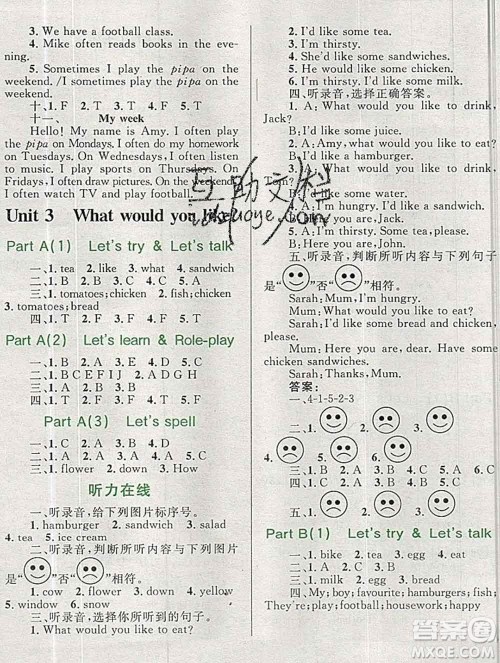 3. We have a football class.
4. Mike often reads books in the eve-
ning.
5. Sometimes I play the pipa on the
weekend. /I sometimes play the pipa on the
weekend.
十、1. F 2. T 3. F 4. T 5. T
十一、 My week
Hello! My name is Amy. I often play
the pipa on Mondays. I often do my homework
on Tuesdays. On Wednesdays, I often listen
to music. I often play sports on Thursdays. On
Fridays, I often draw pictures. On the weekend,
I often watch TV and play football.
Unit 3 What would you like
Part A(1) Let's try & Let's talk
一、1. tea 2. like 3. what 4. sandwich
二、1. C 2. A 3. B 4. A
三、1. tomatoes; chicken 2. fish; chicken
3. tomatoes; bread
四、1. T 2. F 3. F 4. T
Part A(2) Let's learn & Role-play
一、1. B 2. A 3. E 4. D 5. C
二、1. B C E F I J 2. A D G H
三、1. C 2. A 3. B 4. B 5. A
四、1. D 2. E 3. A 4. B 5. C
Part A(3) Let's spell
一、1. C 2. B 3. A 4. D
二、1. C 2. D 3. A 4. B
三、1. flower 2. down 3. How 4. cow
听力在线
一、听录音，给下列图片标序号。
1. hamburger 2. sandwich 3. salad
4. tea 5. ice cream
二、听录音，判断所听内容与下列图片
是“ ”否“ ”相符。
1. cow 2. flower 3. down 4. yellow
5. window 6. snow
三、听录音，选择你所听到的句子。
1. What would you like to eat?
2. I'd like some tea.
3. I'm thirsty.
4. She'd like some sandwiches.
5. He would like some chicken.
6. I'm thirsty. I'd like some milk.
四、听录音，选择正确答案。
1. A: What would you like to drink,
Jack?
B: I'd like some juice.
2. A: Amy, what would you like to eat?
B: I'd like a hamburger.
3. A: What would you like to drink,
B: I'd like some water.
B: Here you are, Jack.
B: Here you are, John.
五、听录音，判断所听内容与下列句子
是“ ”否“ ”相符。
Sarah: Mum, I'm hungry.
Mum: What would you like to eat?
Sarah: I'd like some bread and chicken,
please.
Mum: Here you are, dear. Have some
chicken and some sandwiches.
Sarah: Thanks, Mum.
答案：
一、4-1-5-2-3
二、1. 2. 3.
4. 5. 6.
三、1. B 2. A 3. B 4. C 5. A 6. B
四、1. C 2. A 3. B 4. C 5. A
五、1. 2. 3. 4.
Part B(1) Let's try & Let's talk
一、1. bike 2. tea 3. egg 4. eat
二、1. A 2. B 3. A 4. B
三、1. milk 2. egg 3. bread
四、My; boy; favourite; hamburgers; fish;
They're; play; football; housework; happy
互助文栏
答案圈
MXQE.COM